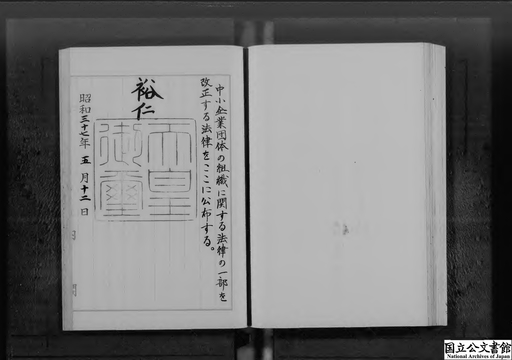 中小企業団体の組織に関する法律の一部を
改正する法律をここに公布する。
裕仁
天皇
御璽
昭和三十七年五月十二日
国立公文書館
National Archives of Japan